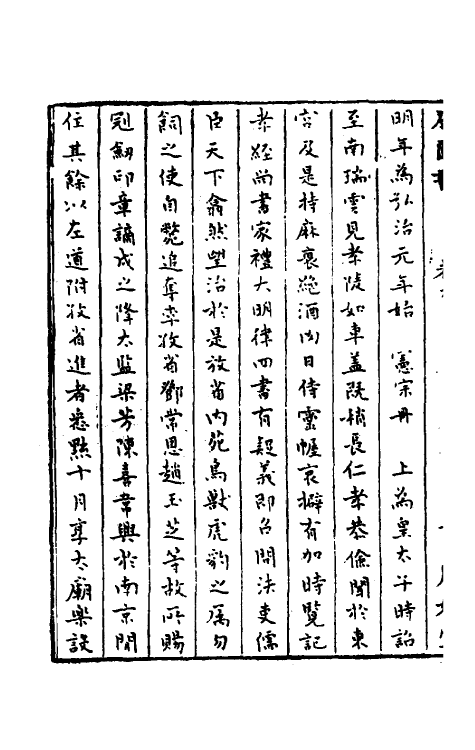 明年為弘治元年始　憲宗冊　上為皇太子時詔
至南瑞雲見孝陵如車蓋既稍長仁孝恭儉聞於東
宮及是持麻衰絕酒肉日侍靈幄哀擗有加時覽記
孝經尚書家禮大明律四書有疑義即召問法吏儒
臣天下翕然望治於是放省內苑鳥獸虎豹之屬勿
飼之使自斃追奪李孜省鄧常恩趙玉芝等故所賜
冠劒印章謫戍之降太監梁芳陳喜韋興於南京閒
住其餘以左道附孜省進者悉黜十月享太廟樂設